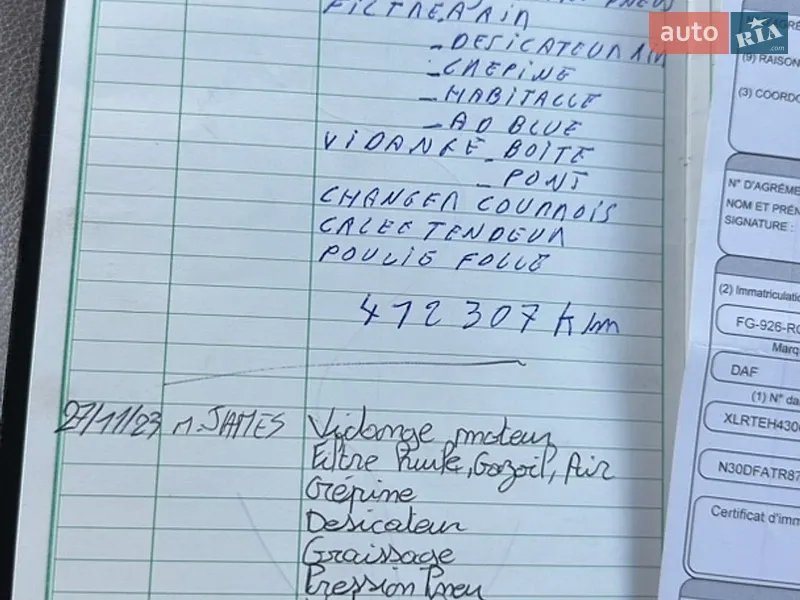 PNEUS
FILTRE.AAIN
_DESICATEUR AIR
_CREPINE
_HABITACLE
_AD BLUE
VIDANGE_BOITE
_PONT
CHANGER COURROIS
GALEE TENDEUR
POULIE FOLLE
412307 Klm
27/11/23 M.JAMES Vidange moteur
Filtre huile, Gazoil, Air
Crépine
Desicateur
Graissage
Pression Pneu
auto RIA.com
(9) RAISON
(3) COORDO
N° D'AGRÉME
NOM ET PRÉN
SIGNATURE :
(2) Immatriculatio
FG-926-R
Marq
DAF
(1) N° da
XLRTEH430
N30DFATR87
Certificat d'imm